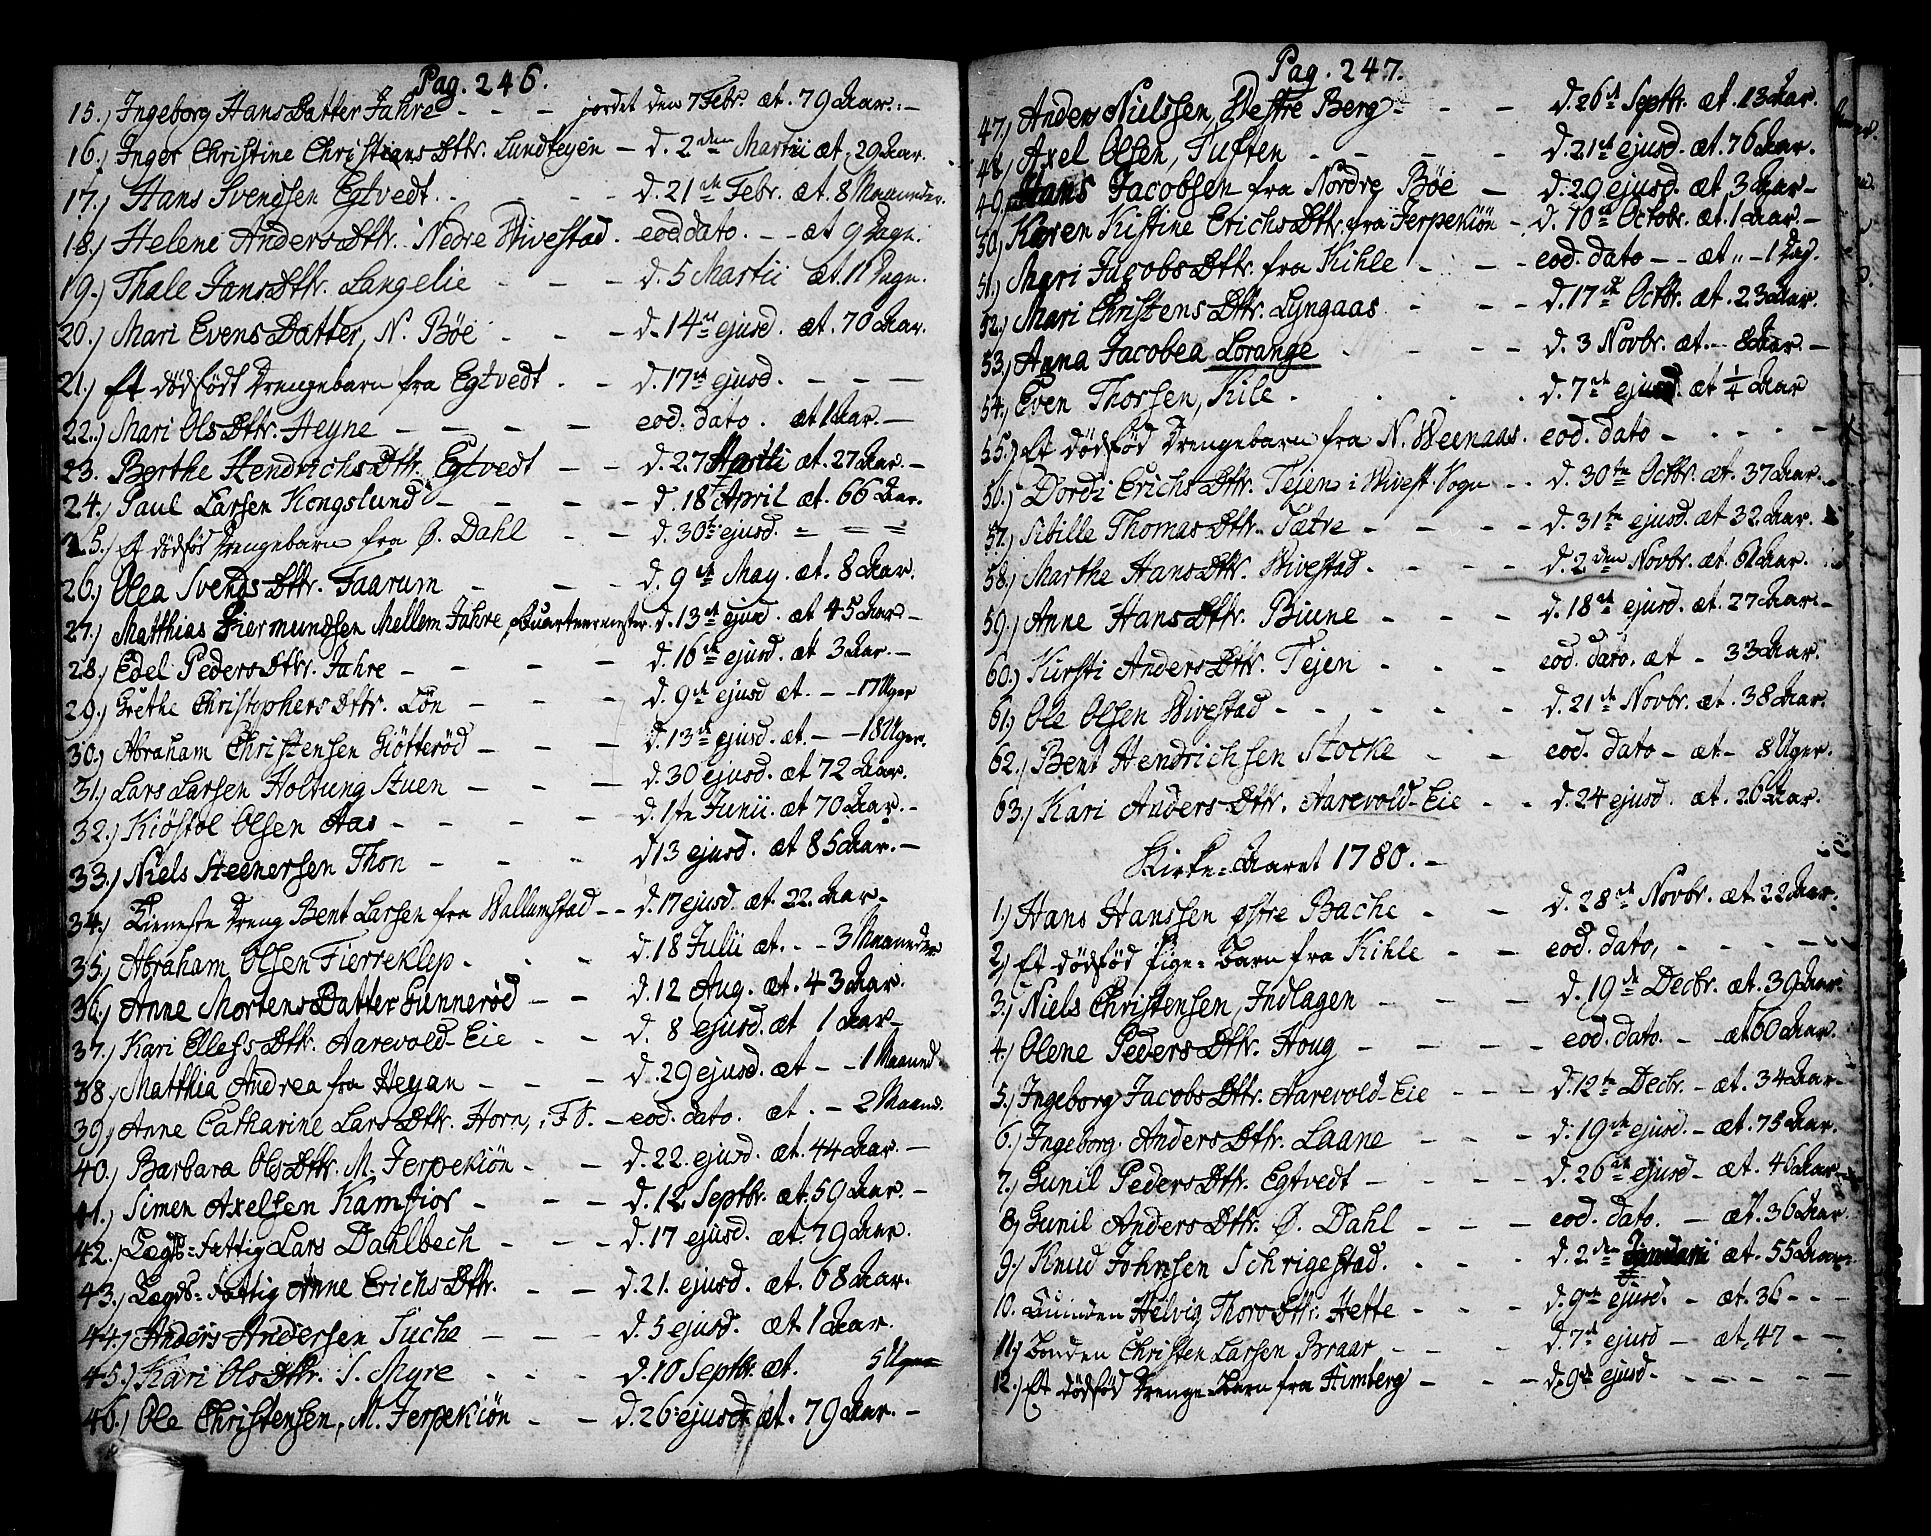 Pag. 246.
15.) Ingeborg HansDatter Jahre - - - jordet den 7 Febr. æt. 79 Aar. -
16.) Inger Christine Christians Dttr. Lundteyen - d. 2den Martii æt. 29 Aar.
17.) Hans Svendsen Egtvedt. - - - d. 21de Febr. æt. 8 Maaneder.
18.) Helene Anders Dttr. Nedre Wivestad. eod. dato. - - æt 9 Dage.
19.) Thale Jans Dttr. Langelie - - - d. 5 Martii æt. 11 Dage.
20.) Mari Evens Datter, N. Böe - - - d. 14de ejusd. æt. 70 Aar.
21.) Et dödfödt Drengebarn fra Egtvedt. - - d. 17de ejusd. - - -
22.) Mari Ols Dttr. Heyne - - - - eod. dato. æt 1 Aar. -
23. Berthe Hendrichs Dttr. Egtvedt - - d. 27 Martii æt. 27 Aar. -
24.) Paul Larsen Kongslund - - - - d. 18 April æt. 66 Aar.
25.) Et dödfød Drengebarn fra Ø. Dahl - - d. 30te ejusd. = = =
26.) Olea Svends Dttr. Faarum - - - d. 9de May. æt. 8 Aar.
27.) Matthias Giermundsen Mellem Jahre, Quarteermester d. 13de ejusd. æt 45 Aar -
28.) Edel Peders Dttr. Jahre - - - - d. 16de ejusd. æt 3 Aar. -
29.) Grethe Christophers Dttr. Lön - - - d. 9de ejusd æt. - - 17 Uger
30.) Abraham Christensen Giötteröd - - - d. 13de ejusd. æt. - - 18 Uger.
31.) Lars Larsen Holtung Stuen - - - d. 30 ejusd. æt 72 Aar.
32.) Kiöstol Olsen Aas - - - - d. 1ste Junii. æt 70 Aar. -
33.) Niels Steenersen Thon - - - d 13 ejusd. æt 85 Aar. -
34.) Tieneste Dreng Bent Larsen fra Wallumstad - - d. 17 ejusd. æt. 22. Aar -
35.) Abraham Olsen Fierreklep - - - d. 18 Julii æt. - - 3 Maaneder
36.) Anne Mortens Datter Gunneröd - - d. 12 Aug. æt. 43 Aar.
37.) Kari Ellefs Dttr. Aarevold-Eie - - d. 8 ejusd. æt 1 Aar -
38.) Matthia Andrea fra Heyan - - - d. 29 ejusd. æt - - 1 Maaned.
39.) Anne Catharine Lars Dttr. Horn, i F. S. - eod. dato. æt. - 2 Maaned.
40.) Barbara Ols Dttr. M. Jerpekiön - - d. 22. ejusd. æt. 44 Aar. -
41.) Simen Axelsen Kamfior - - - d. 12 Septbr. æt. 59 Aar. -
42.) Lægds-Fattig Lars Dahlbech - - - d. 17 ejusd. æt. 79 Aar.
43.) Lægds-Fattig Anne Erichs Dttr. - - d. 21. ejusd. æt. 68 Aar.
44.) Anders Andersen Suche - - - d. 5 ejusd. æt. 1 Aar.
45.) Kari Ols Dttr. S. Myre - - - d. 10 Septbr. æt. 5 Uger
46.) Ole Christensen, M. Jerpekiön - - d. 26 ejusd. æt. 79 Aar. -
Pag. 247.
47.) Anders Nielssen, Westre Berg - - - d. 26de Septbr. æt. 13 Aar.
48.) Axel Olsen, Tuften - - - - d. 21de ejusd. æt. 76 Aar.
49.) Hans Jacobsen fra Nordre Böe - d. 29 ejusd. æt. 3 Aar -
50.) Karen Kistine Erichs Dttr. fra Jerpekiön - d. 10de Octobr. æt. 1 Aar. -
51.) Mari Jacobs Dttr. fra Kihle - - - eod. dato - - æt " - 1 Dag.
52.) Mari Christens Dttr. Lyngaas - - d. 17de Octbr. æt. 23 Aar.
53.) Anna Jacobea Lorange - - - - d. 3 Novbr. æt. - 8 Aar. -
54.) Even Thorsen, Kile - - - - d. 7de ejusd. æt 1/4 Aar
55.) Et dödfød Drengebarn fra N. Weenaas. eod. dato - - - - -
56.) Dordi Erichs Dttr. Tejen i Wivest. Sogn - - d. 30te Octbr. æt. 37 Aar.
57.) Sibille Thomas Dttr. Tætve - - - - d. 31te ejusd. æt 32 Aar.
58.) Marthe Hans Dttr. Wivestad - - - - d. 2den Novbr. æt. 61 Aar.
59.) Anne Hans Dttr. Biune - - - d. 18de ejusd. æt. 27 Aar -
60.) Kirsti Anders Dttr. Tejen - - - eod. dato. æt - 33 Aar.
61.) Ole Olsen Wivestad - - - - - d. 21de Novbr. æt. 38 Aar.
62.) Bent Hendrichsen Stocke - - eod. dato - æt - 8 Uger.
63.) Kari Anders Dttr. Aarevold-Eie - - d. 24 ejusd. æt. 26 Aar.
Kirke-Aaret 1780. -
1.) Hans Hanssen østre Bache - - d. 28de Novbr. æt. 22 Aar.
2.) Et dödfød Pige-Barn fra Kihle - - eod. dato, - - - - -
3.) Niels Christensen, Indlagen - - - d. 19de Decbr. æt. 39 Aar.
4.) Olene Peders Dttr. Houg - - - - eod. dato. - æt 60 Aar.
5.) Ingeborg Jacobs Dttr. Aarevold-Eie - - - d. 12te Decbr. - æt. 34 Aar -
6.) Ingeborg Anders Dttr. Laane - - - d. 19de ejusd. - æt. 75 Aar.
7.) Gunil Peders Dttr. Egtvedt - - - - d. 26de ejusd - æt. 46 Aar -
8.) Gunil Anders Dttr. Ø. Dahl - - - eod. dato. - æt. 36 Aar
9.) Knud Johnsen Schrigestad. - - - d. 2den Januarii æt. 55 Aar
10. Quinden Helvig Thoro Dttr. Hette - - - d. 9de ejusd. - æt. 36 - - -
11.) Bonden Christen Larsen Braar - - - d. 7de ejusd - æt. 47 - -
12.) Et dödfød Drenge-Barn fra Himberg - - - d. 9de ejusd. - - - - -